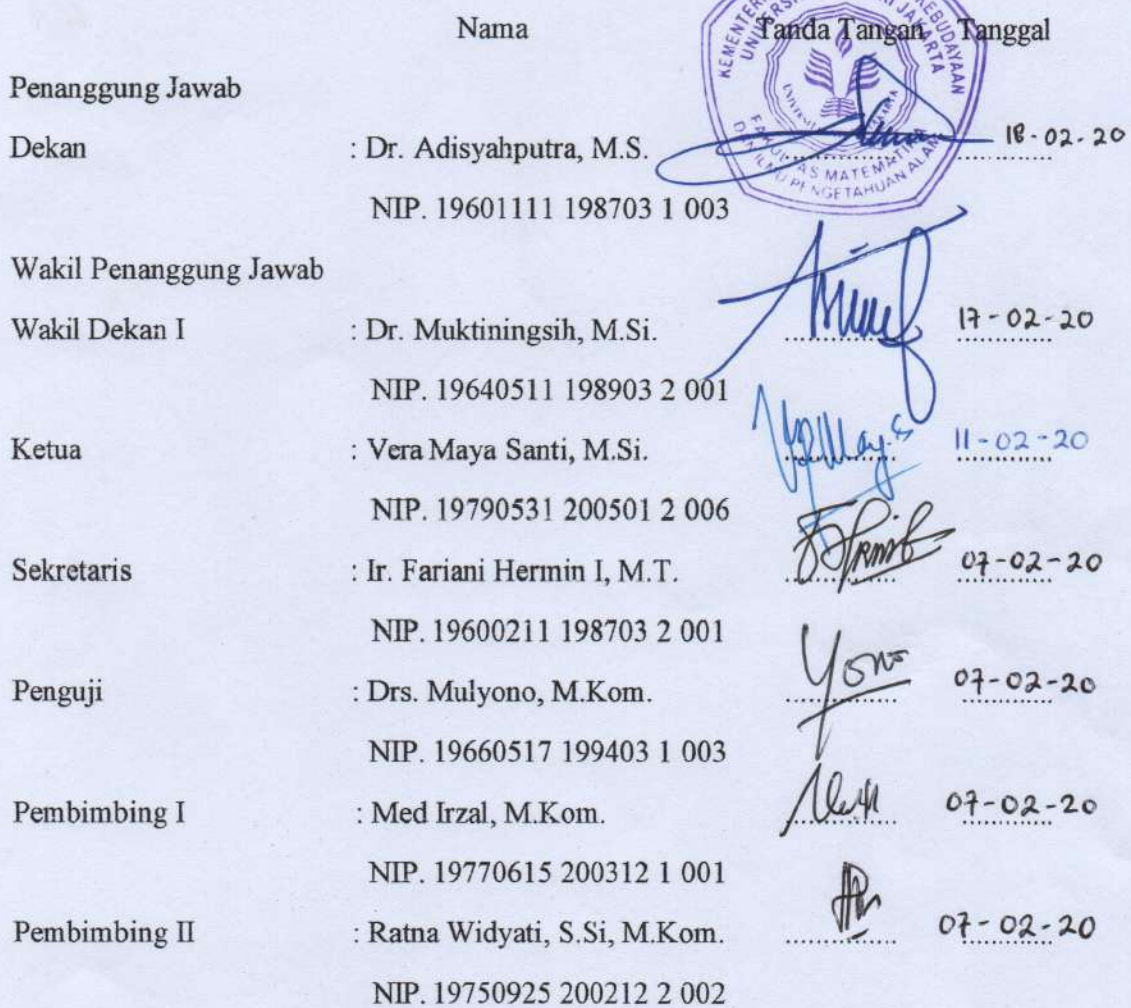 Nama Tanda Tangan Tanggal
Penanggung Jawab
Dekan : Dr. Adisyahputra, M.S. .............. 18-02-20
NIP. 19601111 198703 1 003
Wakil Penanggung Jawab
Wakil Dekan I : Dr. Muktiningsih, M.Si. .............. 17-02-20
NIP. 19640511 198903 2 001
Ketua : Vera Maya Santi, M.Si. .............. 11-02-20
NIP. 19790531 200501 2 006
Sekretaris : Ir. Fariani Hermin I, M.T. .............. 07-02-20
NIP. 19600211 198703 2 001
Penguji : Drs. Mulyono, M.Kom. Yono 07-02-20
NIP. 19660517 199403 1 003
Pembimbing I : Med Irzal, M.Kom. .............. 07-02-20
NIP. 19770615 200312 1 001
Pembimbing II : Ratna Widyati, S.Si, M.Kom. .............. 07-02-20
NIP. 19750925 200212 2 002
KEBUDAYAAN
JAKARTA
FAKULTAS MATEMATIKA
DAN ILMU PENGETAHUAN ALAM